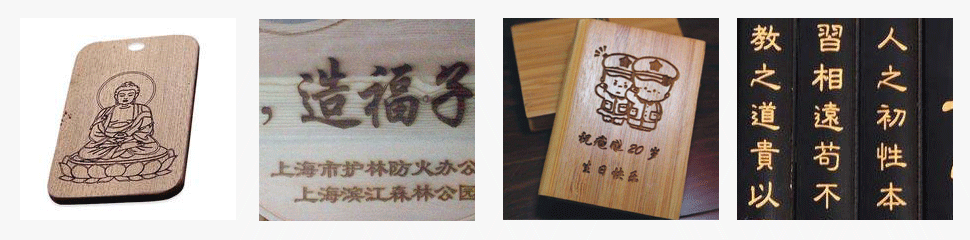 ，造福子
上海市护林防火办公
上海滨江森林公园
祝俺胞20岁
生日快乐
人之初性本
習相遠苟不
教之道貴以